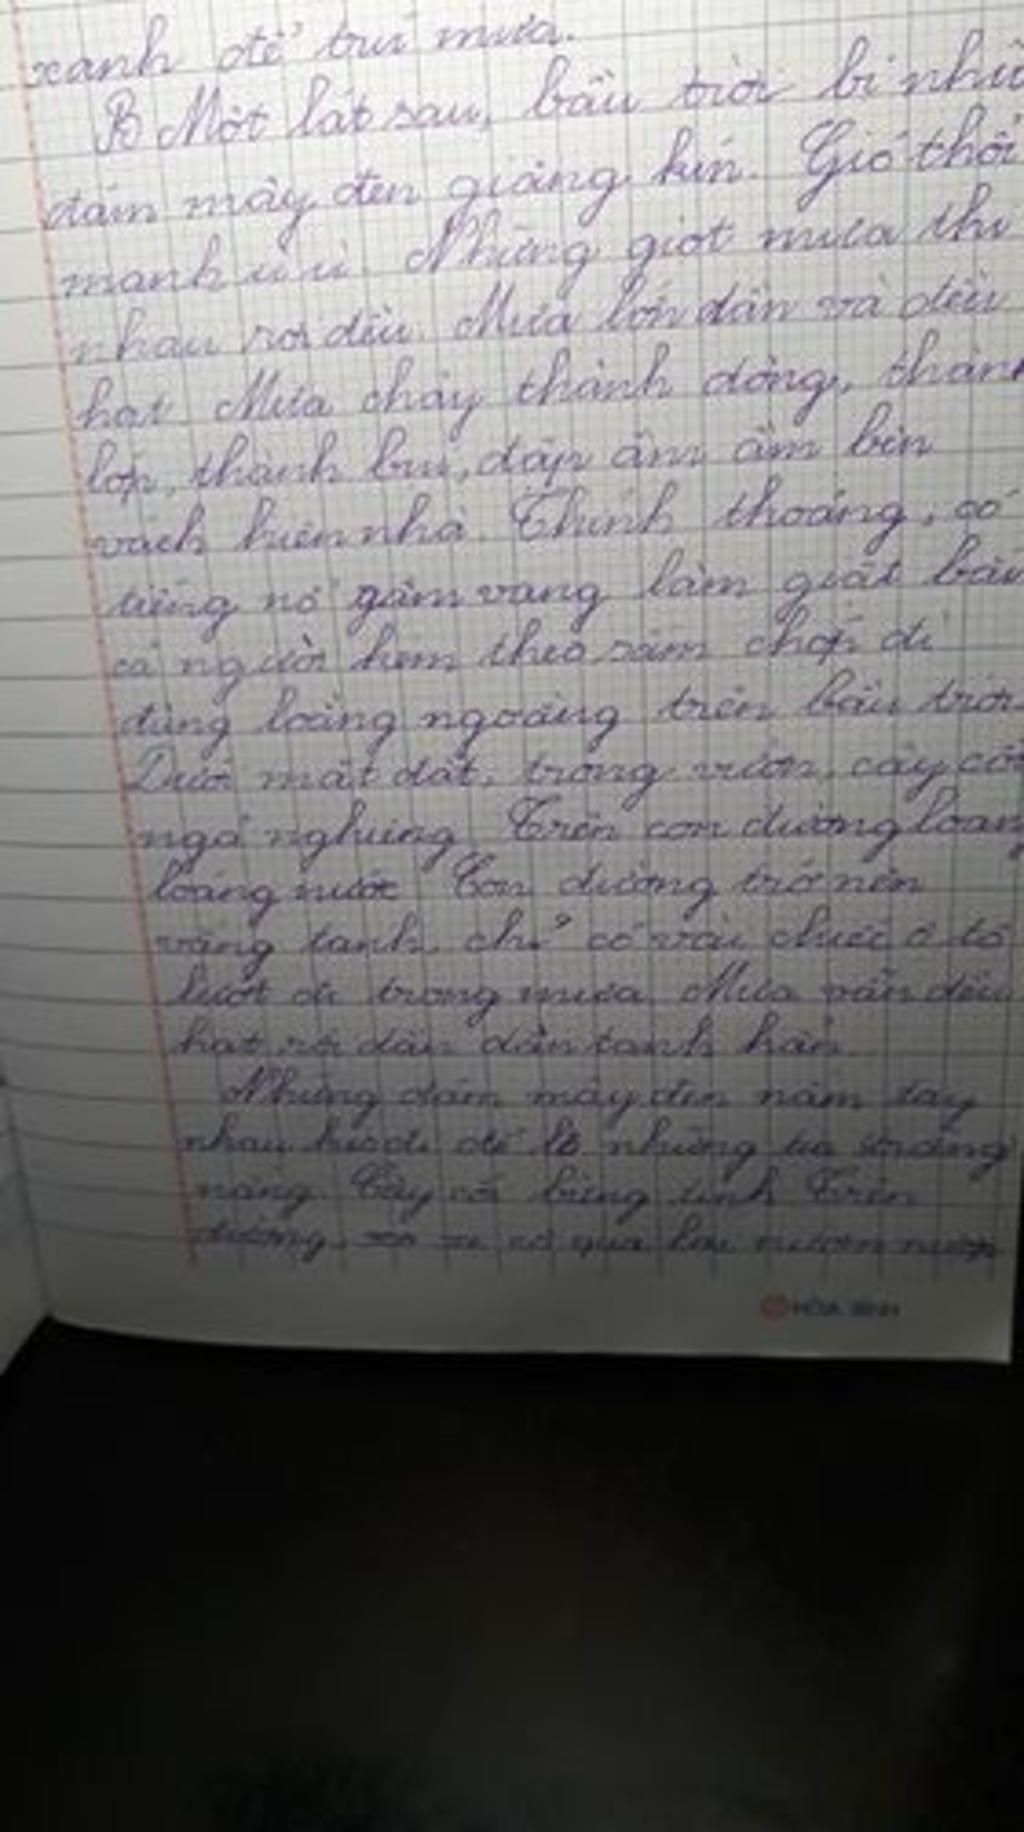 xanh để trú mưa.
Một lát sau, bầu trời bị nhữ
đám mây đen giăng kín. Gió thổi
mạnh ù ù. Những giọt mưa thi
nhau rơi đều. Mưa lớn dần và đều
hạt. Mưa chảy thành dòng, thành
lớp, thành bụi, đập ầm ầm bên
vách hiên nhà. Thỉnh thoảng, có
tiếng nổ gầm vang làm giật bắn
cả người kèm theo sấm chớp đì
đùng loằng ngoằng trên bầu trời.
Dưới mặt đất, trong vườn, cây cối
ngả nghiêng. Trên con đường loang
loáng nước. Con đường trở nên
vắng tanh, chỉ có vài chiếc ô tô
lướt đi trong mưa. Mưa vẫn đều
hạt rồi dần dần tạnh hẳn.
Những đám mây đen nắm tay
nhau kéo đi để lộ những tia
nắng. Cây cối bừng tỉnh. Trên
đường, xe cộ qua lại nườm nượp
HÒA BÌNH